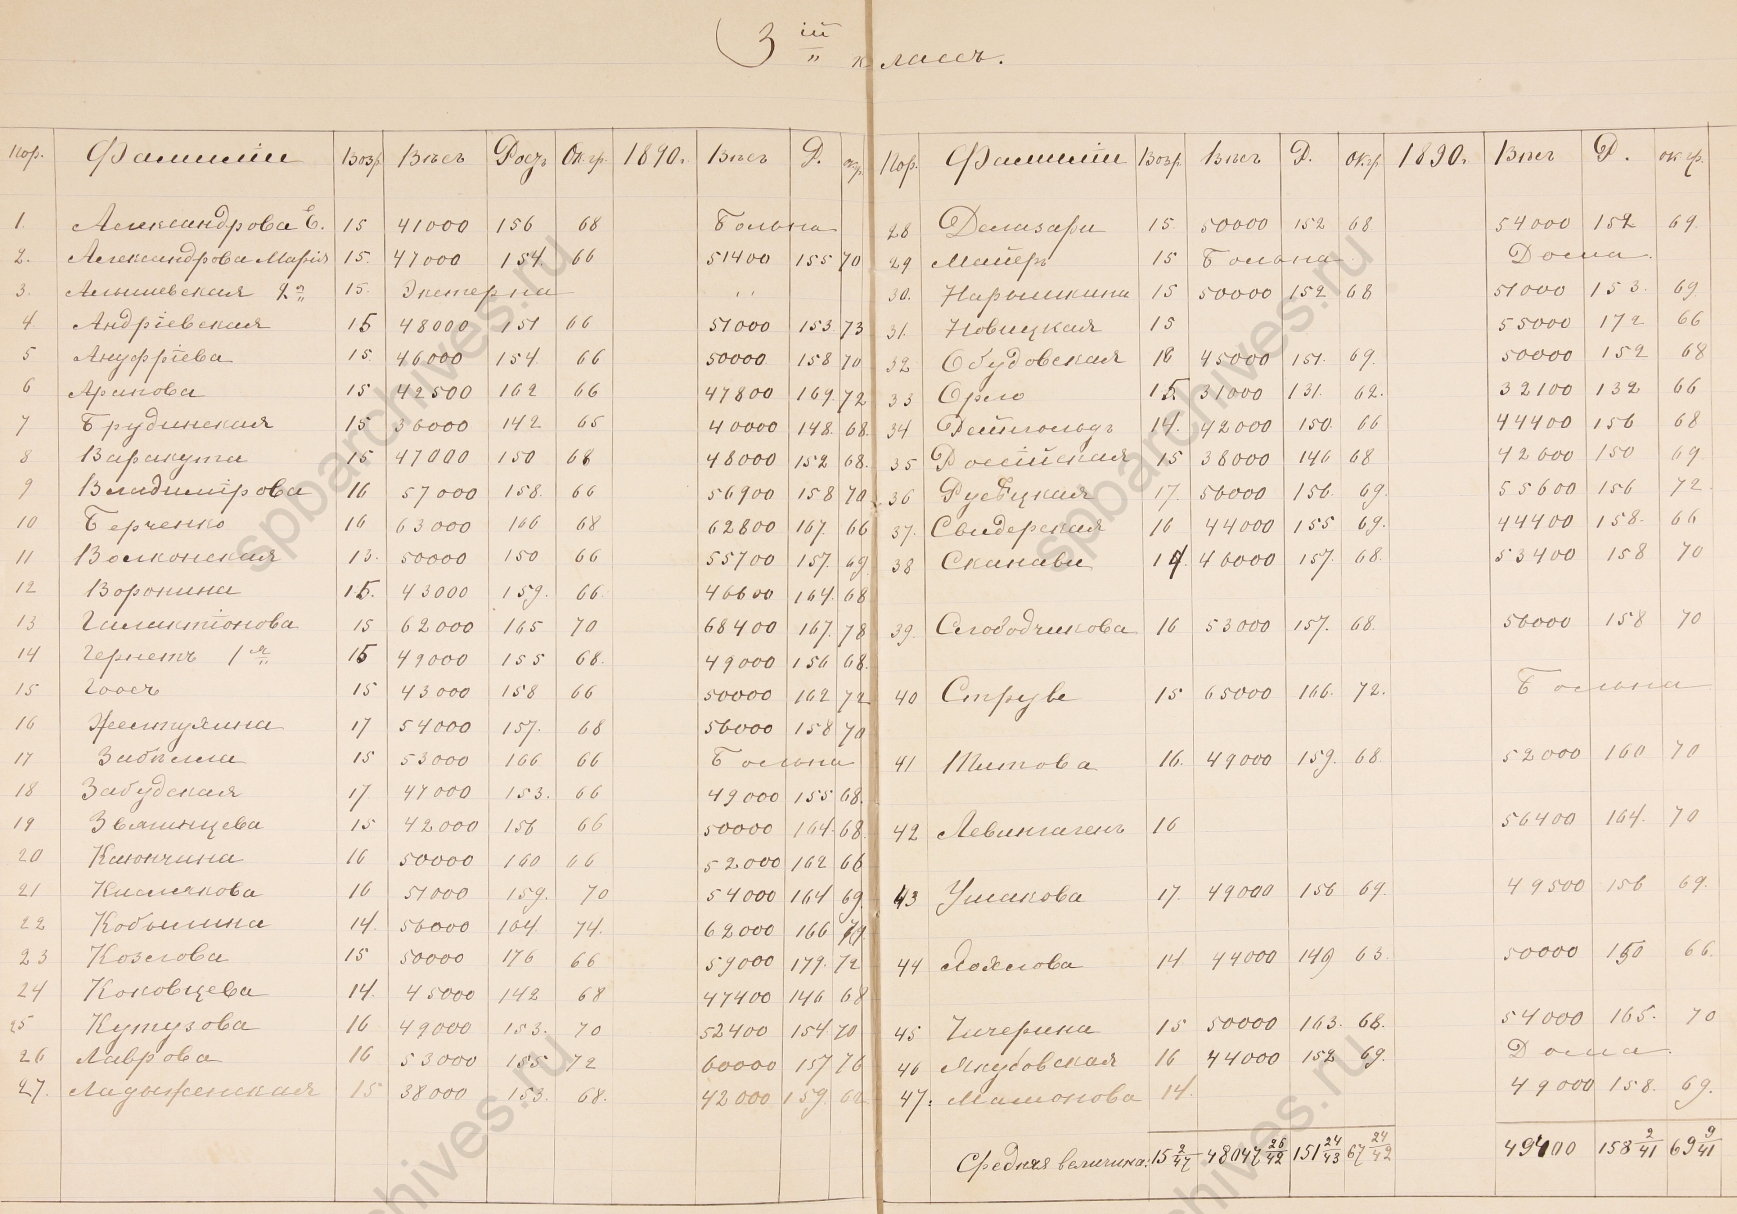 3 iй классъ.
Пор. Фамилiи Возр. Вѣсъ Ростъ Ок. гр. 1890г. Вѣсъ Р. окр.
1. Александрова Е. 15 41000 156 68 Больна
2. Александрова Марiя 15. 47000 154. 66 51400 155 70
3. 2я 15. Экстерна
4. Андрiевская 15 48000 151 66 51000 153 73
5 Ануфрiева 15. 46000 154. 66 50000 158 70
6 Арапова 15 42500 162 66 47800 169. 72
7 Брудинская 15 36000 142 65 40000 148. 68.
8 Варакута 15 47000 150 68 48000 152 68.
9 Владимiрова 16 57000 158. 66 56900 158 70
10 Берченко 16 63000 166 68 62800 167. 66
11 Волконская 13. 50000 150 66 55700 157. 69
12 Воронина 15. 43000 159. 66 46600 164. 68
13 Галактiонова 15 62000 165 70 68400 167. 78
14 Гернетъ 1я 15 49000 155 68. 49000 156 68.
15 Гоосъ 15 43000 158 66 50000 162 72
16 17 54000 157. 68 56000 158 70
17 Забѣлла 15 53000 166 66 Больна
18 Забудская 17 47000 153. 66 49000 155 68.
19 Звягинцева 15 42000 156 66 50000 164. 68.
20 Каюнчина 16 50000 160 66 52000 162 66
21 Кислякова 16 51000 159. 70 54000 164 69
22 Кобылина 14. 56000 164. 74. 62000 166
23 Козлова 15 50000 176 66 59000 179. 72
24 Коковцева 14. 45000 142 68 47400 146 68
25 Кутузова 16 49000 153. 70 52400 154 70
26 Лаврова 16 53000 155 72 60000 157 76
27. Ладыженская 15 38000 153. 68. 42000 159.
Пор. Фамилiи Возр. Вѣсъ Р. окр. 1890г. Вѣсъ Р. ок гр.
28 Делизари 15 50000 152 68 54000 152 69.
29 Майеръ 15 Больна Дома.
30. Нарышкина 15 50000 152 68 51000 153. 69
31. Новицкая 15 55000 172 66
32 Обудовская 16 45000 151. 69. 50000 152 68
33 Орло 15. 31000 131. 62. 32100 132 66
34 Рейнгольдъ 14. 42000 150. 66 44400 156 68
35 Россiйская 15 38000 146 68 42600 150 69
36 Русецкая 17. 50000 156. 69. 55600 156 72.
37. Свидерская 16 44000 155 69. 44400 158. 66
38 Сканави 14. 46000 157. 68. 53400 158 70
39. Слободчикова 16 53000 157. 68. 56000 158 70
40 Струве 15 65000 166. 72. Больна
41 Титова 16. 49000 159. 68. 52000 160 70
42 Левингагенъ 16 56400 164. 70
43 Ушакова 17. 49000 156 69. 49500 156 69.
44 14 44000 149 63. 50000 150 66.
45 Чичерина 15 50000 163. 68. 54000 165. 70
46 Якубовская 16 44000 152 69. Дома.
47. Мамонова 14. 49000 158. 69.
Средняя величина: 15 2/47 48047 26/42 151 24/43 67 24/42 49400 158 2/41 69 9/41
spbarchives.ru
spbarchives.ru